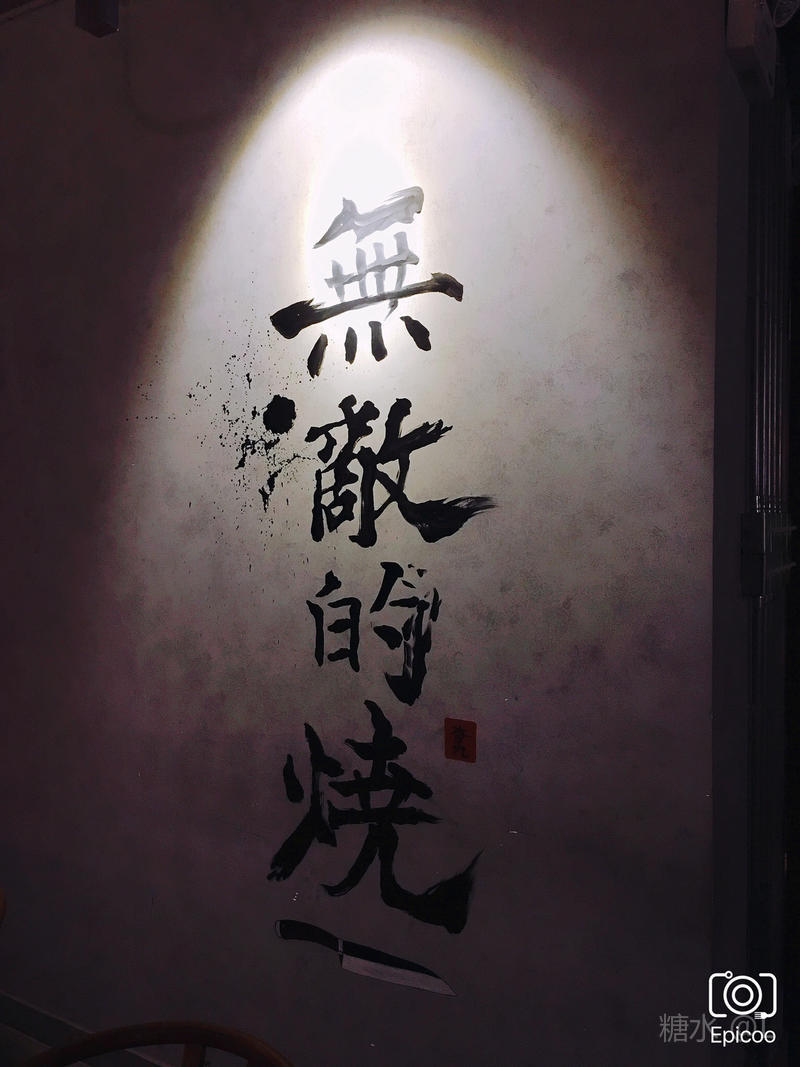 無敵的燒
糖水
Epicoo